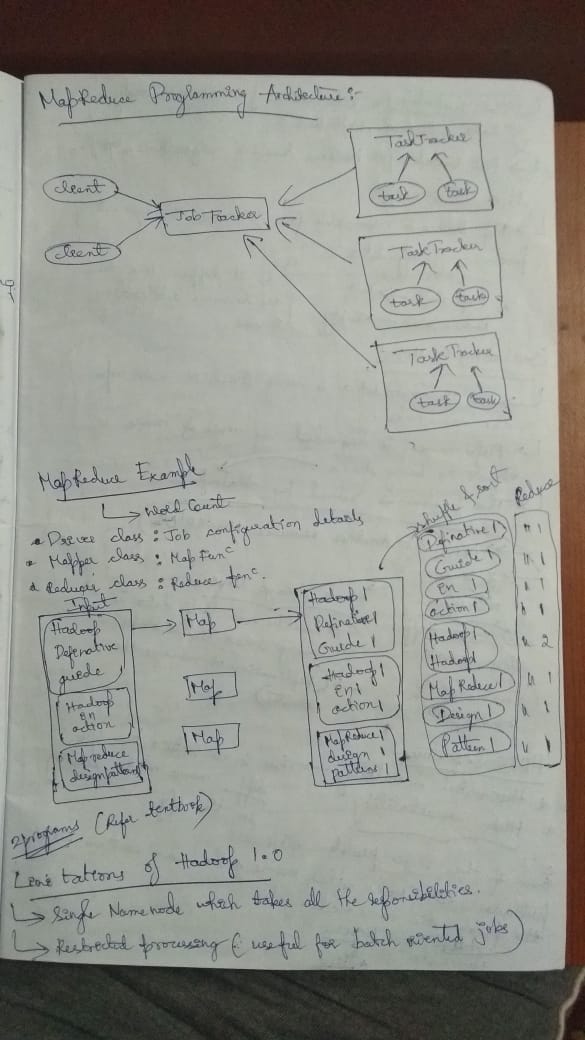 MapReduce Programming Architecture :-
client
client
Job Tracker
TaskTracker
task
task
TaskTracker
task
task
TaskTracker
task
task
MapReduce Example
Word Count
Driver class : Job configuration details
Mapper class : Map Funᶜ
Reducer class : Reduce funᶜ.
Input
Hadoop
Defenative
guide
Hadoop
En
action
Mapreduce
designpattern
Map
Map
Map
Hadoop 1
Definative 1
Guide 1
Hadoop 1
En 1
action 1
MapReduce 1
design 1
patterns 1
shuffle & sort
Definative 1
Guide 1
En 1
action 1
Hadoop 1
Hadoop 1
MapReduce 1
Design 1
Pattern 1
Reduce
" 1
" 1
" 1
" 1
" 2
" 1
" 1
" 1
2programs (Refer textbook)
Limi tations of Hadoop 1.0
Single Namenode which takes all the responsibilities.
Restricted processing ( useful for batch oriented jobs)